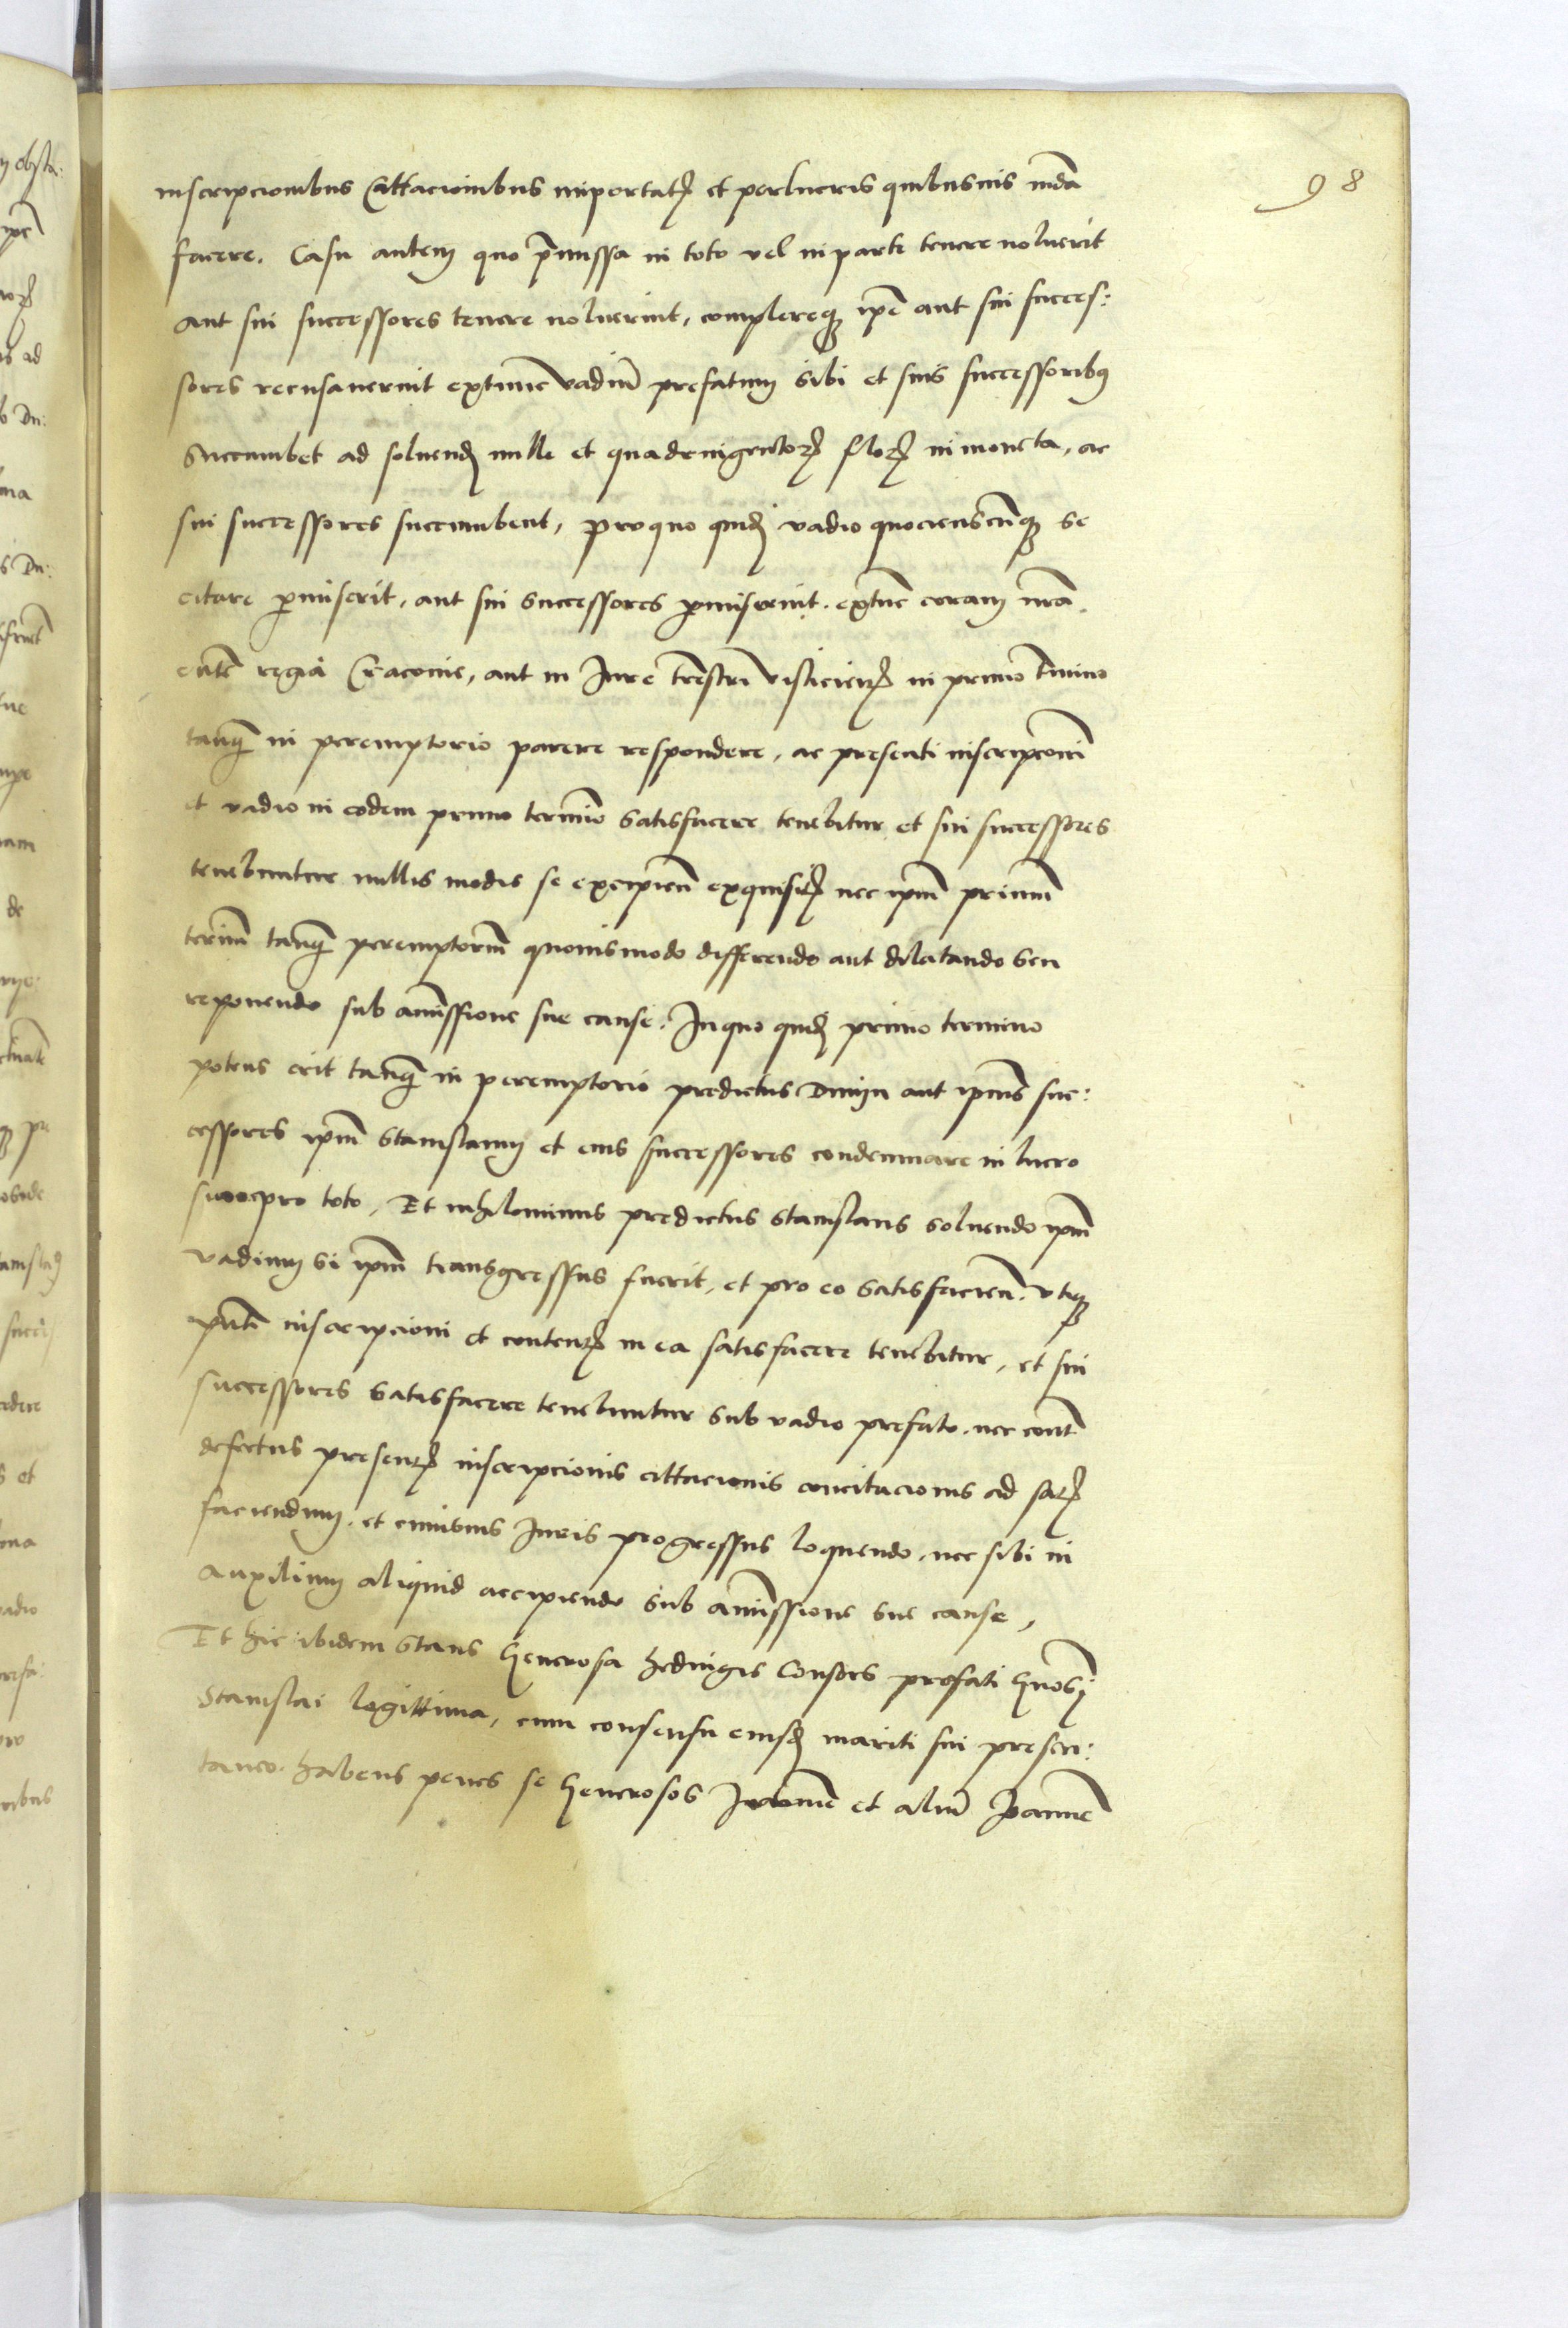 98
inscripcionibus Cittacionibus importatꝝ et perlucris quibusuis mda
facere. Casu autem quo p̃missa in toto vel in parte tenere noluerit
aut sui successores tenere noluerint, complereqꝫ ip̃e aut sui succes:
sores recusauerint extunc vadiũ prefatum sibi et suis successoribꝯ
Succumbet ad soluendꝭ mille et quadringentoꝝ floꝝ in moneta, ac
sui successores succumbent, pro quo quidꝭ vadio quocienscũqꝫ se
citare ꝑmiserit, aut sui successores ꝑmiserint. extũc coram mtã
cutẽ regia Cracouie, aut in Jure trẽstri vislicienꝭ in primo tm̃ino
tanqꝫ in peremptorio parere respondere, ac presenti inscripcõni
et vadio in eodem primo termĩo satisfacere tenebitur et sui successores
tenebuntur nullis modis se excipieñ exquisitꝭ nec ipm̃ primũ
termĩ tanqꝫ peremptoriũ quouismodo differendo aut dilatando seu
reponendo sub amĩssione sue cause. In quo quidꝭ primo termino
potens erit tanqꝫ in peremptorio predictus Dmijn aut ipsius suc:
cessores ipm̃ Stanislaum et eius successores condemnare in lucro
suo pro toto, Et nihilominus predictus Stanislaus soluendo ipm̃
vadium si ipm̃ transgressus fuerit, et pro eo satisfacieñ. vtiqꝫ
pñti inscripcioni et contentꝭ in ea satisfacere tenebitur, et sui
successores satisfacere tenebuntur sub vadio prefato. nec cont̃
defectus presentꝭ inscripcionis cittacionis concitacionis ad satꝭ
faciendum. et cuiusuis Juris progressus loquendo. nec sibi in
auxilium aliquid accipiendo sub amĩssione sue cause,
Et hic ibidem stans Generosa Hedvigis Consors prefati Gñosi
Stanislai legittima, cum consensu eiusdꝭ mariti sui presen:
taneo. habens penes se Generosos Joannẽ et aliũ Joannẽ